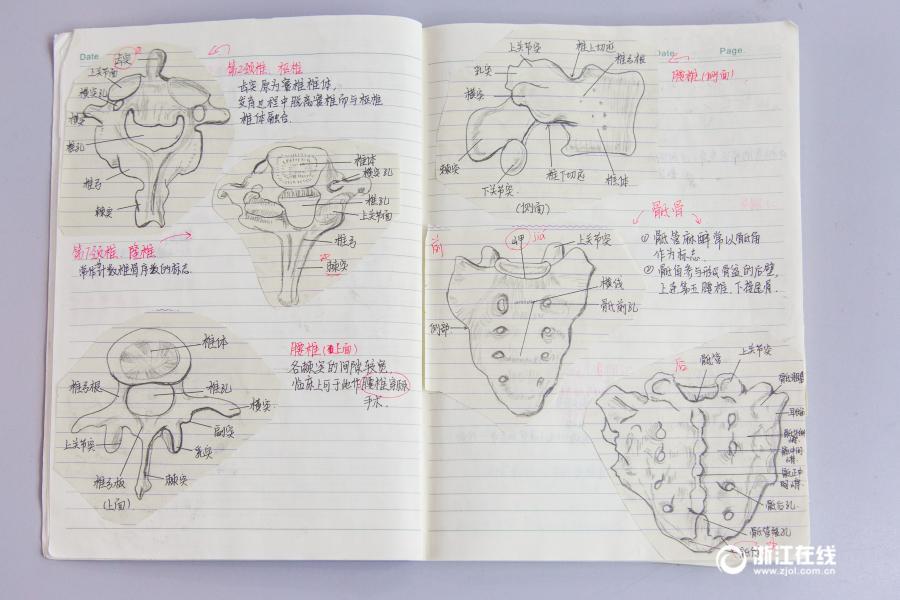 Date
齿突
上关节面
横突孔
横突
椎孔
椎弓
棘突
第2颈椎、枢椎
齿突原为寰椎椎体,
发育过程中脱离寰椎而与枢椎
椎体融合.
椎体
横突孔
椎孔
上关节面
椎弓
棘突
第7颈椎、隆椎
常作计数椎骨序数的标志.
椎体
椎弓根
椎孔
横突
上关节突
副突
乳突
椎弓板
棘突
(上面)
腰椎(上面)
各棘突的间隙较宽
临床上可于此作腰椎穿刺
手术.
Date
Page.
上关节突
椎上切迹
椎弓根
乳突
横突
棘突
下关节突
椎下切迹
椎体
(侧面)
腰椎(侧面)
骶骨
① 骶管麻醉常以骶角
作为标志.
② 骶骨参与形成骨盆的后壁,
上连第五腰椎,下接尾骨.
前
岬
jiǎ
上关节突
横线
骶前孔
侧部
后
骶管
上关节突
骶粗隆
耳状面
骶中间
骶正中
骶后孔
骶管裂孔
浙江在线
www.zjol.com.cn